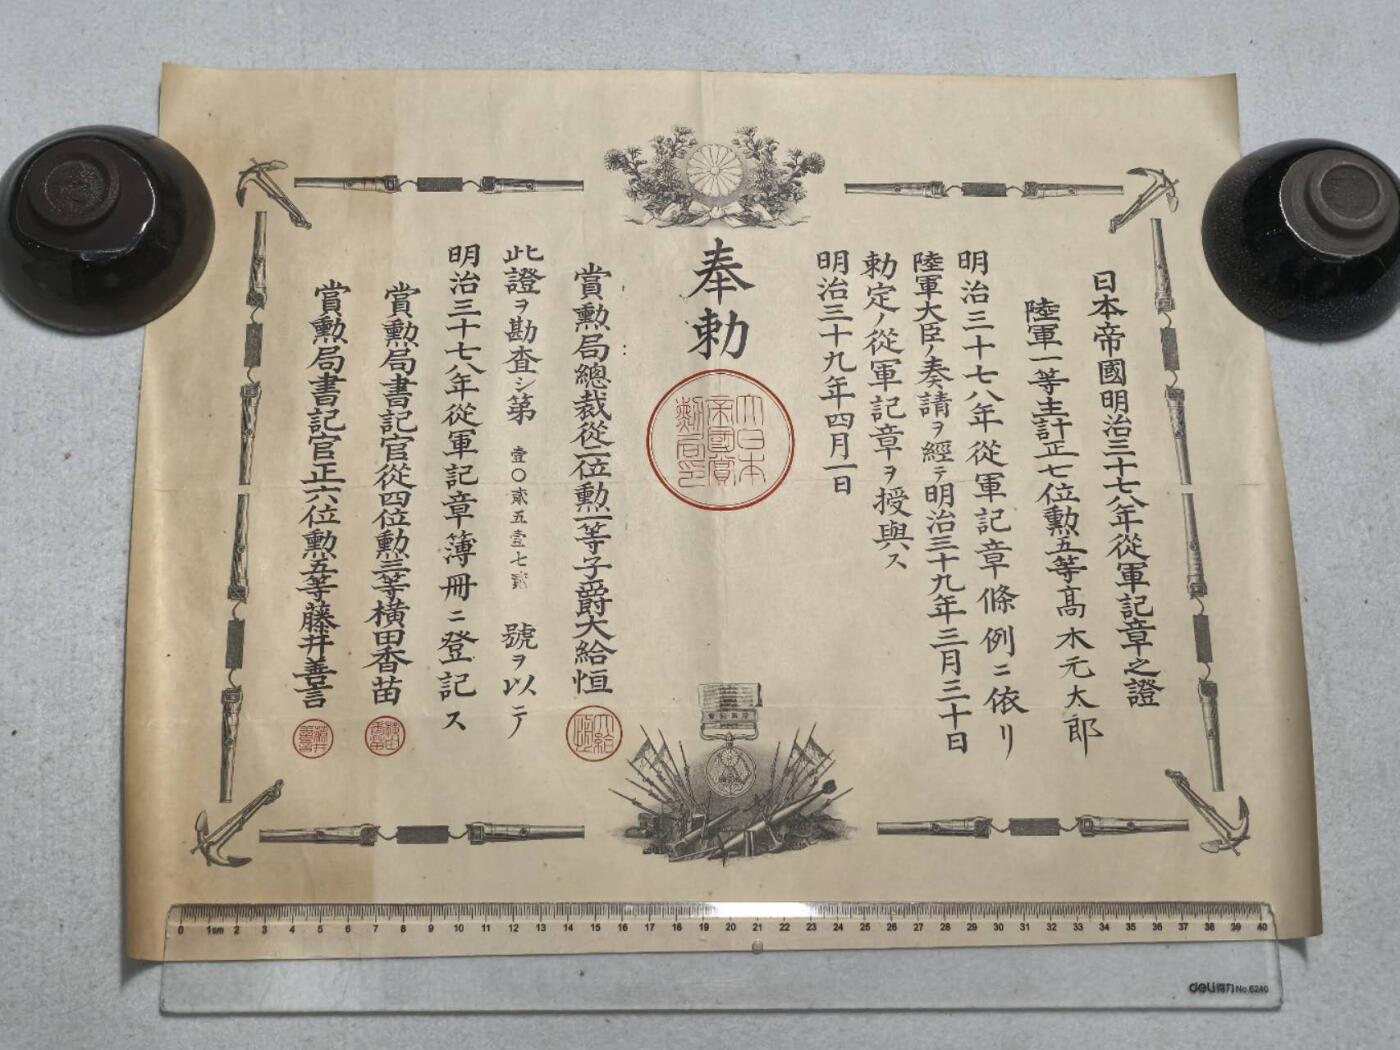 日本帝國明治三十七八年從軍記章之證
陸軍一等主計正七位勲五等髙木元太郎
明治三十七八年從軍記章條例ニ依リ
陸軍大臣ノ奏請ヲ經テ明治三十九年三月三十日
勅定ノ從軍記章ヲ授與ス
明治三十九年四月一日
奉勅
大日本
帝國賞
勲局印
賞勲局總裁從二位勲一等子爵大給恒
此證ヲ勘査シ第壹〇貳五壹七貳號ヲ以テ
明治三十七八年從軍記章簿冊ニ登記ス
賞勲局書記官從四位勲三等横田香苗
賞勲局書記官正六位勲五等藤井善言
0 1cm 2 3 4 5 6 7 8 9 10 11 12 13 14 15 16 17 18 19 20 21 22 23 24 25 26 27 28 29 30 31 32 33 34 35 36 37 38 39 40
deli得力 No.6240